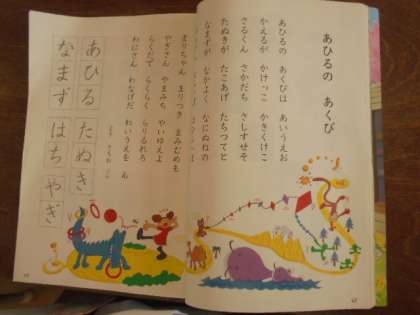 あひるの あくび
あひるの あくびは あいうえお
かえるが かけっこ かきくけこ
さるくん さかだち さしすせそ
たぬきが たこあげ たちつてと
なまずが なかよく なにぬねの
まりちゃん まりつき まみむめも
やぎさん やまみち やいゆえよ
らくだで らくらく らりるれろ
わにさん わなげだ わいうえを ん
あひる たぬき
なまず はち やぎ